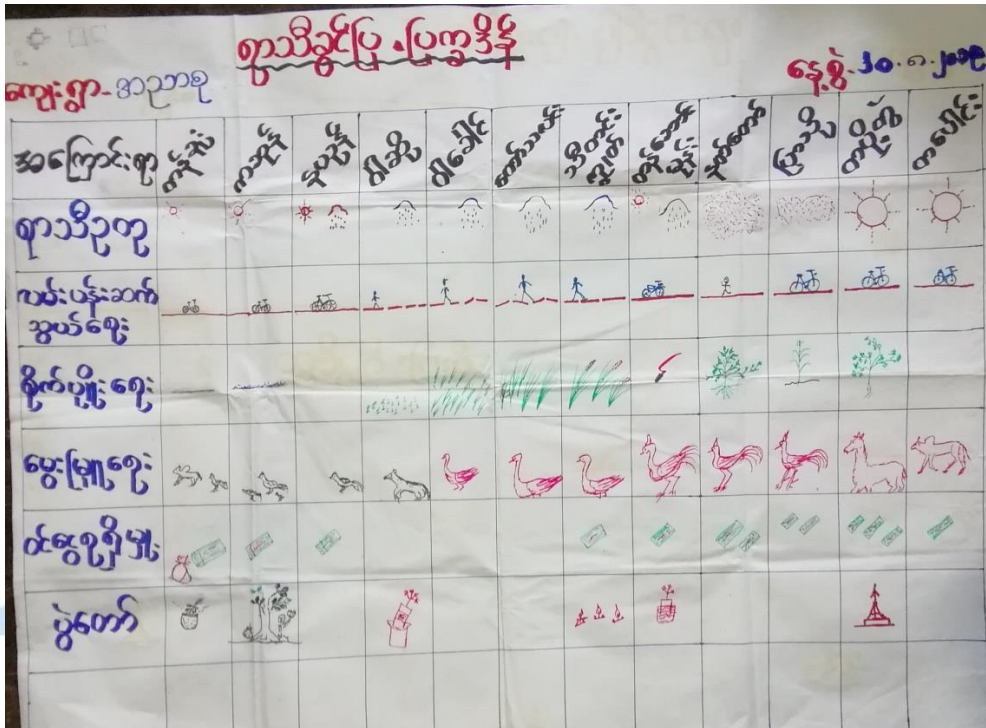 ရာသီခွင်ပြ ပြက္ခဒိန်
ကျေးရွာ- အညာစု
နေ့စွဲ- ၁၀.၈.၂၀၁၉
အကြောင်းရာ တန်ခူး ကဆုန် နယုန် ဝါဆို ဝါခေါင် တော်သလင်း သီတင်းကျွတ် တန်ဆောင်မုန်း နတ်တော် ပြာသို တပို့တွဲ တပေါင်း
ရာသီဥတု
လမ်းပန်းဆက်
သွယ်ရေး
စိုက်ပျိုးရေး
မွေးမြူရေး
ဝင်ငွေရရှိမှု
ပွဲတော်